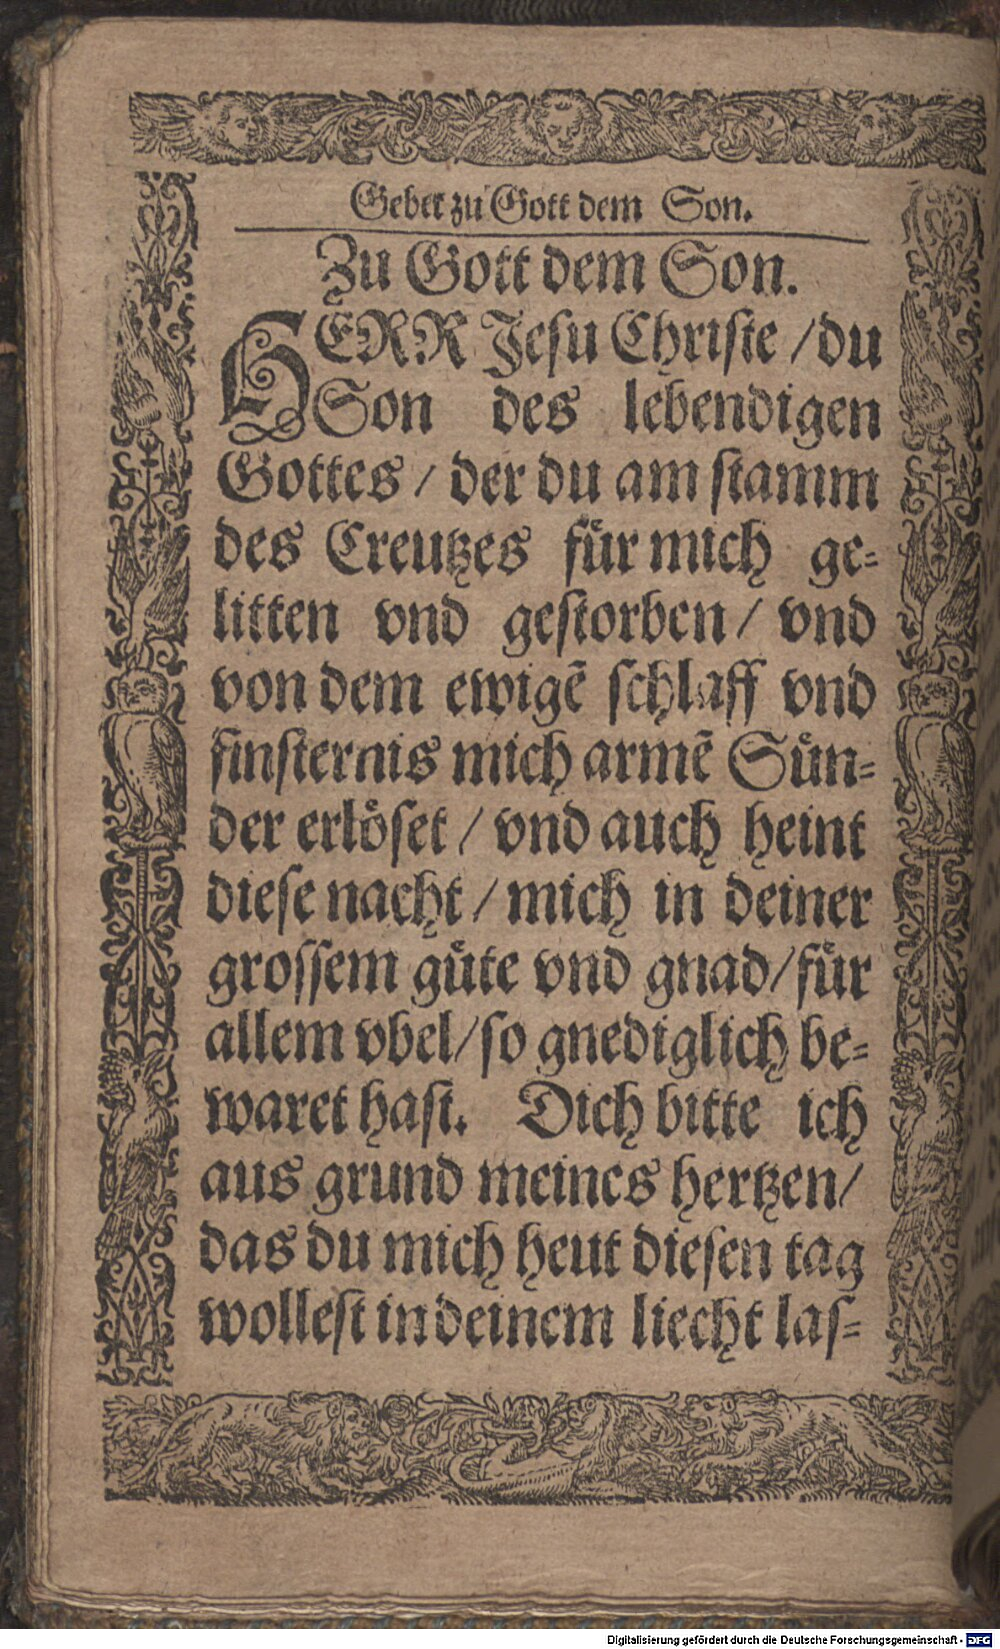 Gebet zu Gott dem Son.
Zu Gott dem Son.
HERR Jesu Christe / du
Son des lebendigen
Gottes / der du am stamm
des Creutzes fuͤr mich ge-
litten vnd gestorben / vnd
von dem ewigẽ schlaff vnd
finsternis mich armẽ Suͤn-
der erloͤset / vnd auch heint
diese nacht / mich in deiner
grossem guͤte vnd gnad / fuͤr
allem vbel / so gnediglich be-
waret hast. Dich bitte ich
aus grund meines hertzen /
das du mich heut diesen tag
wollest in deinem liecht las-
Digitalisierung gefördert durch die Deutsche Forschungsgemeinschaft - DFG